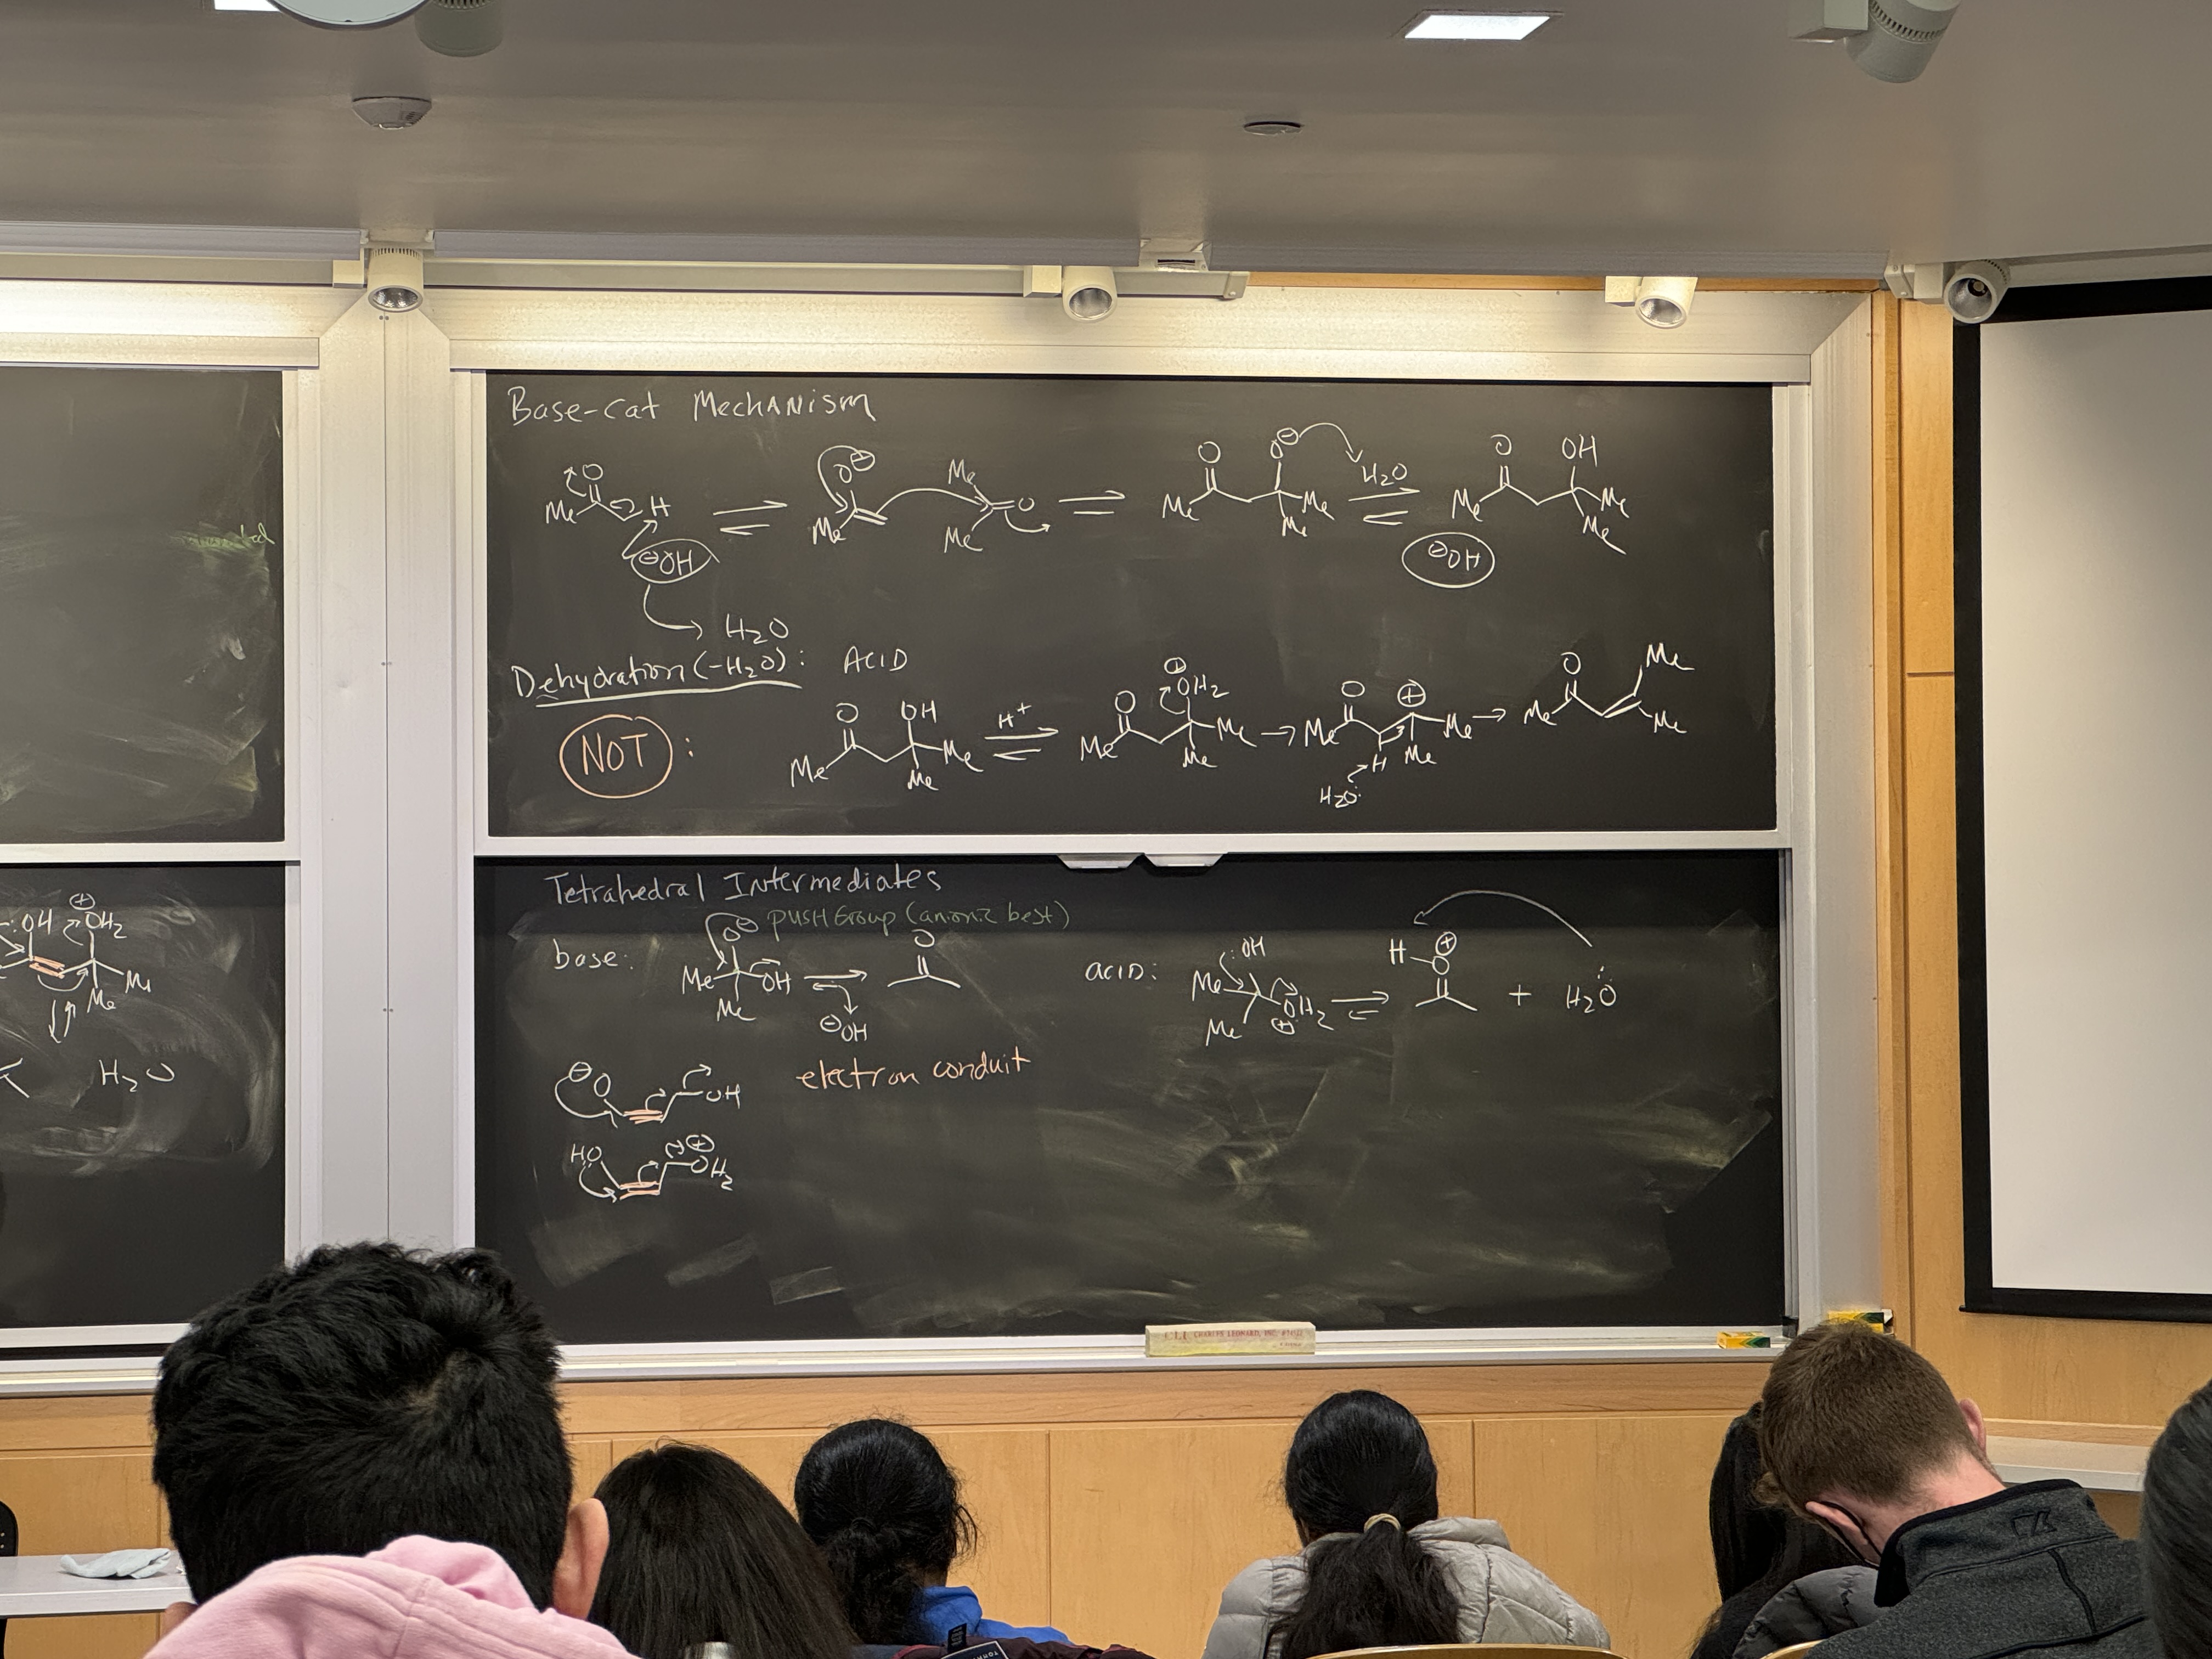 Base-Cat Mechanism
O
Me
H
⊖OH
H2O
O⊖
Me
Me
Me
O
O
O⊖
Me
Me
Me
H2O
⊖OH
O
OH
Me
Me
Me
Dehydration (-H2O): ACID
NOT:
O
OH
Me
Me
Me
H+
O
⊕
OH2
Me
Me
Me
O
⊕
Me
Me
Me
H
H2O:
O
Me
Me
Me
Tetrahedral Intermediates
PUSH Group (anionic best)
base:
O⊖
Me
OH
Me
⊖OH
O
acid:
:OH
Me
OH2
⊕
Me
H
O
⊕
+ H2O
⊖O
OH
electron conduit
HO
⊕
OH2
:OH
⊕
OH2
Me
Me
H2O
CLI CHARLES LEONARD, INC.